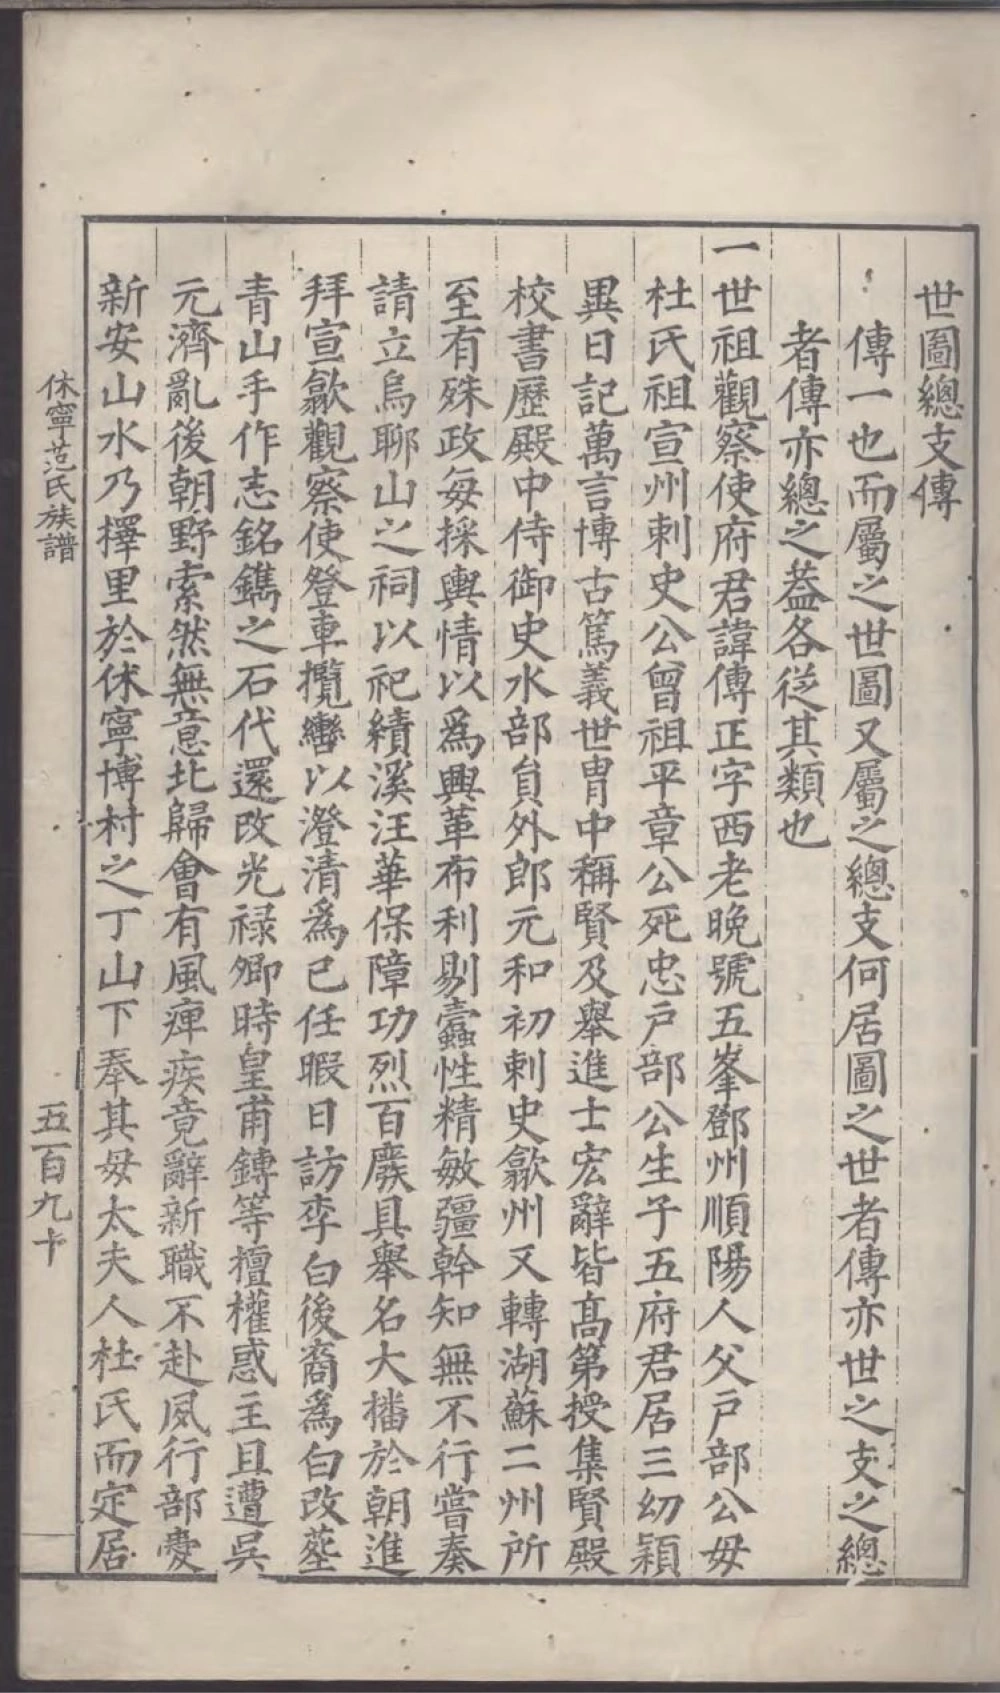 世圖總支傳
傳一也而屬之世圖又屬之總支何居圖之世者傳亦世之支之總
者傳亦總之葢各從其類也
一世祖觀察使府君諱傳正字西老晚號五峯鄧州順陽人父戸部公毋
杜氏祖宣州刺史公曾祖平章公死忠戸部公生子五府君居三幼穎
異日記萬言博古篤義世胄中稱賢及舉進士宏辭皆髙第授集賢殿
校書歷殿中侍御史水部員外郎元和初刺史歙州又轉湖蘇二州所
至有殊政每採輿情以爲興革布利剔蠹性精敏彊幹知無不行嘗奏
請立烏聊山之祠以祀績溪汪華保障功烈百廢具舉名大播於朝進
拜宣歙觀察使登車攬轡以澄清爲已任暇日訪李白後裔爲白改塟
青山手作志銘鐫之石代還改光禄卿時皇甫鏄等擅權惑主且遭吳
元濟亂後朝野索然無意北歸會有風痺疾竟辭新職不赴夙行部愛
新安山水乃擇里於休寧博村之丁山下奉其毋太夫人杜氏而定居
休寧范氏族譜
五百九十